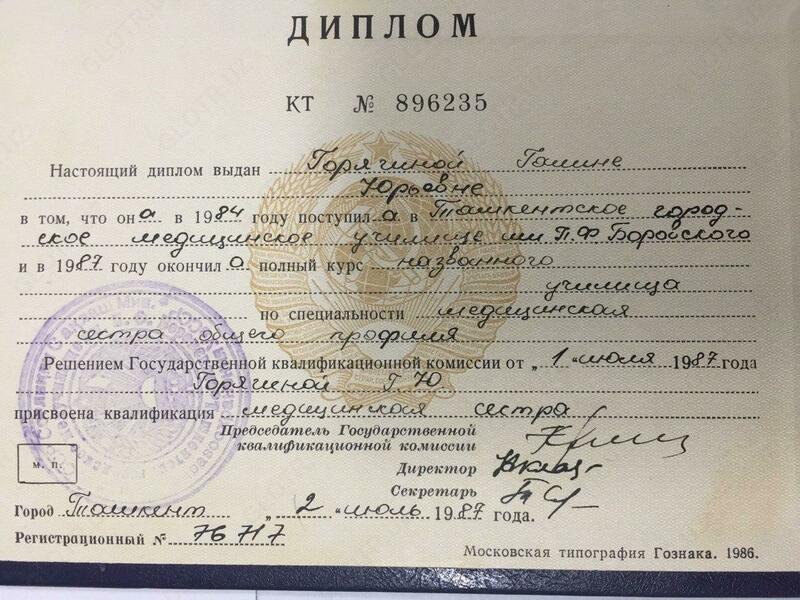 ДИПЛОМ
КТ № 896235
Настоящий диплом выдан Горячиной Галине
Юрьевне
в том, что она в 1984 году поступила в Ташкентское город-
ское медицинское училище им П.Ф Боровского
и в 1987 году окончила полный курс названного
училища
по специальности медицинская
сестра общего профиля
Решением Государственной квалификационной комиссии от „1" июля 1987 года
Горячиной Г Ю
присвоена квалификация медицинская сестра
Председатель Государственной
квалификационной комиссии
Директор
Секретарь
м. п.
Город Ташкент „2" июль 1987 года.
Регистрационный № 76717
Московская типография Гознака. 1986.